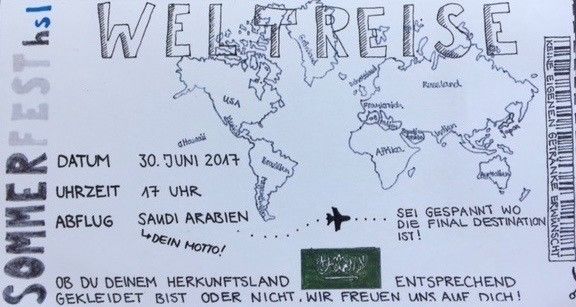 WELTREISE
SOMMERFEST hsl
Grönland
USA
Russland
Hawaii
Japan
Afrika
Indien
Brasilien
Australien
KEINE EIGENEN GETRÄNKE ERWÜNSCHT
DATUM 30. JUNI 2017
UHRZEIT 17 UHR
ABFLUG SAUDI ARABIEN
↳ DEIN MOTTO!
SEI GESPANNT WO
DIE FINAL DESTINATION
IST!
OB DU DEINEM HERKUNFTSLAND ENTSPRECHEND
GEKLEIDET BIST ODER NICHT. WIR FREUEN UNS AUF DICH!